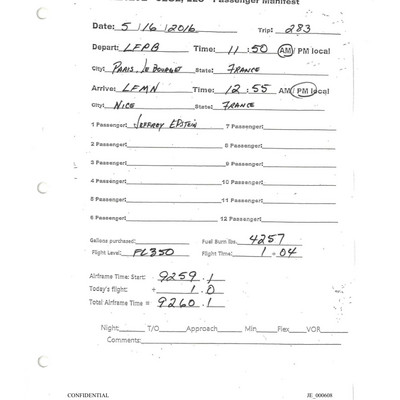 Passenger Manifest
Date: 5 / 16 / 2016 Trip: 283
Depart: LFPB Time: 11:50 AM/ PM local
City: PARIS, Le BOURGET State: FRANCE
Arrive: LFMN Time: 12:55 AM/ PM local
City: NICE State: FRANCE
1 Passenger: JEFFREY EPSTEIN 7 Passenger:
2 Passenger: 8 Passenger:
3 Passenger: 9 Passenger:
4 Passenger: 10 Passenger:
5 Passenger: 11 Passenger:
6 Passenger: 12 Passenger:
Gallons purchased: Fuel Burn lbs. 4257
Flight Level: FL350 Flight Time: 1.04
Airframe Time: Start: 9259.1
Today's flight: + 1.0
Total Airframe Time = 9260.1
Night: T/O Approach Min Flex VOR
Comments:
CONFIDENTIAL JE_000608